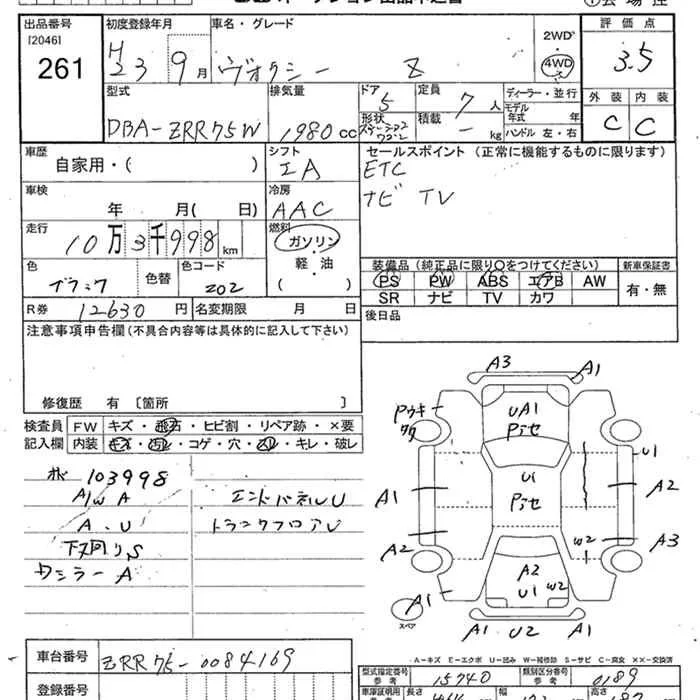 出品番号 初度登録年月 車名・グレード 評価点
[2046]
261
H23 9月 ヴォクシー Z 2WD 4WD 3.5
型式 排気量 ドア 定員 ディーラー・並行 外装 内装
DBA-ZRR75W 1980cc 5 7人 モデル年式 年 C C
形状 ステーションワゴン 積載 - kg ハンドル 左・右
車歴 シフト セールスポイント(正常に機能するものに限ります)
自家用・( ) IA ETC
車検 冷房 ナビ TV
年 月( 日) AAC
走行 燃料
10万3千998km ガソリン
軽・油
色 色替 色コード ( ) 装備品(純正品に限り○をつけてください) 新車保証書
ブラック 202 PS PW ABS エアB AW 有・無
SR ナビ TV カワ
R券 12630円 名変期限 月 日 後日品
注意事項申告欄(不具合内容等は具体的に記入して下さい)
修復歴 有 〔箇所 〕
検査員 FW キズ・飛石・ヒビ割・リペア跡・×要
記入欄 内装 キズ・汚レ・コゲ・穴・スレ・キレ・破レ
103998
A/W A エンドパネルU
A.U トランクフロアU
下廻りS
ワシラーA
A3 A1
UA1
U1
U1
A1 A2
W2
A2 A3
A2
U1 W2
A1
スペア
A1 U2 A1
A-キズ E-エクボ U-凹み W-補修跡 S-サビ C-腐食 XX-交換済
車台番号 ZRR75-0084169
型式指定番号 参考 15740 類別区分番号 参考 0189
登録番号
車庫証明用 長さ 幅 高さ